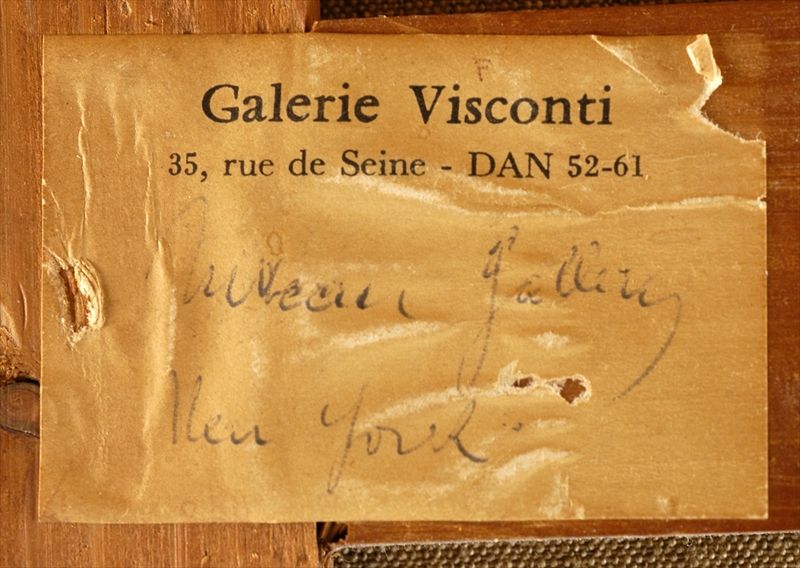 Galerie Visconti
35, rue de Seine - DAN 52-61
Niveau Gallery
New York.